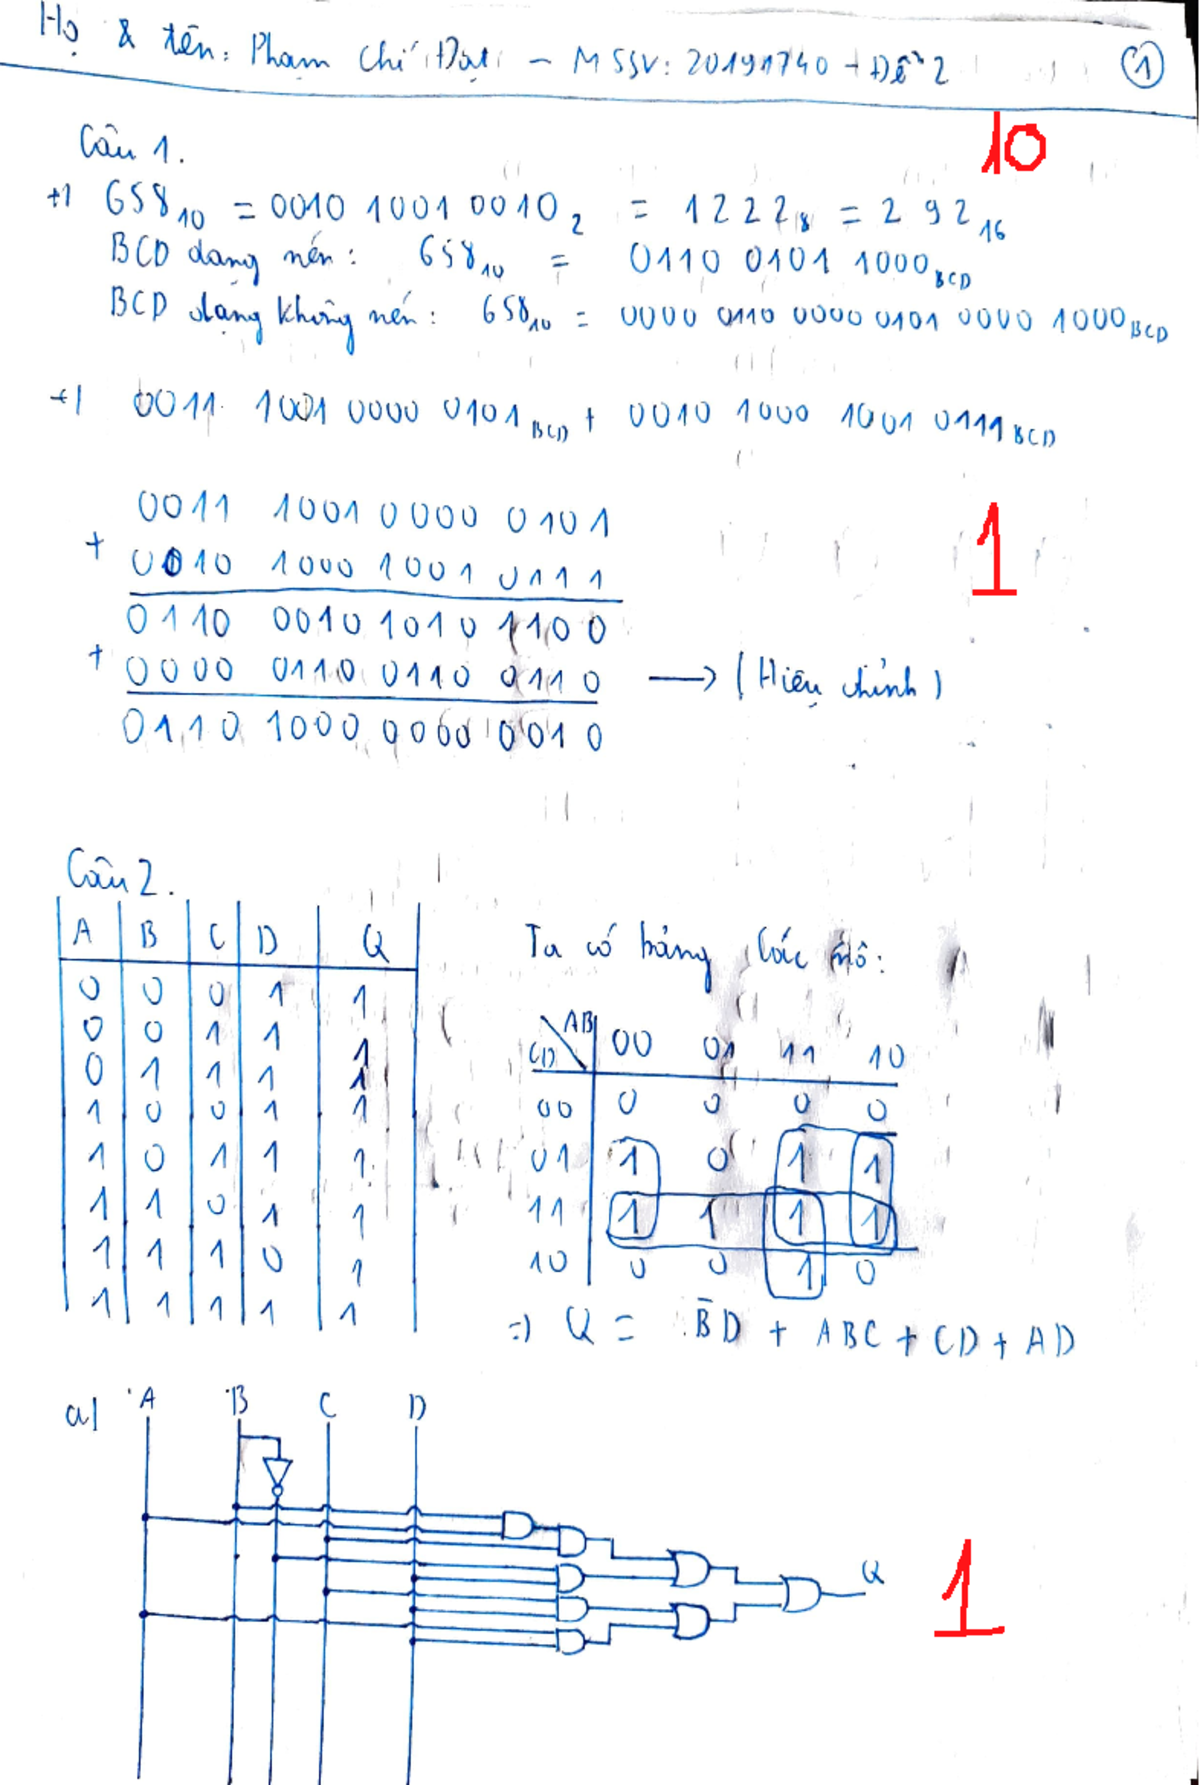 Họ & tên: Phạm Chí Đạt - MSSV: 20191740 - Đề 2 1
10
Câu 1.
+) 658₁₀ = 0010 1001 0010₂ = 1222₈ = 292₁₆
BCD dạng nén: 658₁₀ = 0110 0101 1000 BCD
BCD dạng không nén: 658₁₀ = 0000 0110 0000 0101 0000 1000 BCD
+) 0011 1001 0000 0101 BCD + 0010 1000 1001 0111 BCD
0011 1001 0000 0101
+ 0010 1000 1001 0111
1
0110 0010 1010 1100
+ 0000 0110 0110 0110 → (Hiệu chỉnh)
0110 1000 0000 0010
Câu 2.
A B C D Q
0 0 0 1 1
0 0 1 1 1
0 1 1 1 1
1 0 0 1 1
1 0 1 1 1
1 1 0 1 1
1 1 1 0 1
1 1 1 1 1
Ta có bảng Các nô:
AB 00 01 11 10
CD
00 0 0 0 0
01 1 0 1 1
11 1 1 1 1
10 0 0 1 0
=) Q = B̄D + ABC + CD + AD
a) A B C D
Q
1